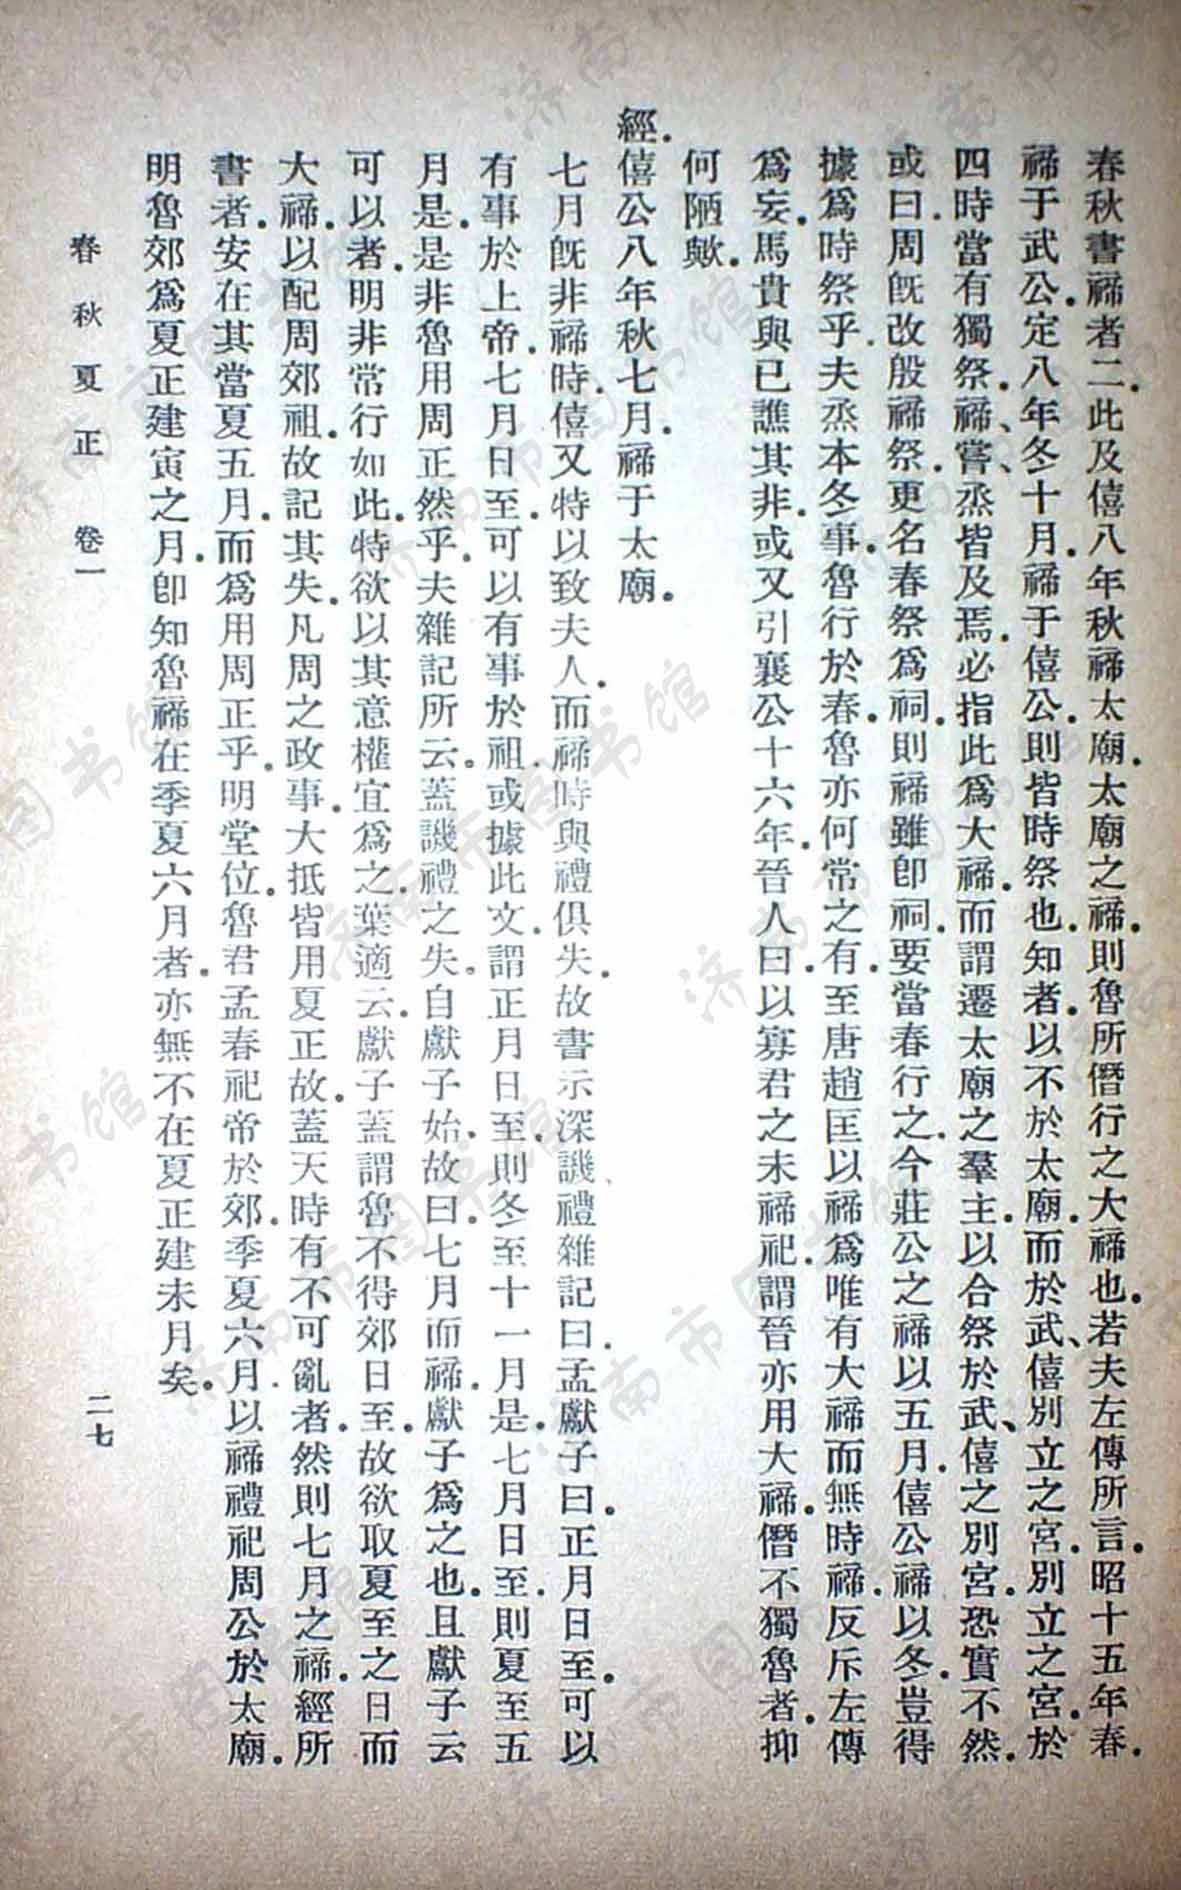 春秋書禘者二.此及僖八年秋禘太廟.太廟之禘.則魯所僭行之大禘也.若夫左傳所言.昭十五年春.
禘于武公.定八年冬十月.禘于僖公.則皆時祭也.知者.以不於太廟.而於武、僖別立之宮.別立之宮.於
四時當有獨祭.禘、嘗、烝皆及焉.必指此爲大禘.而謂遷太廟之羣主.以合祭於武、僖之別宮.恐實不然.
或曰.周既改殷禘祭.更名春祭爲祠.則禘雖卽祠.要當春行之.今莊公之禘以五月.僖公禘以冬.豈得
據爲時祭乎.夫烝本冬事.魯行於春.魯亦何常之有.至唐趙匡以禘爲唯有大禘而無時禘.反斥左傳
爲妄.馬貴與已譙其非.或又引襄公十六年.晉人曰.以寡君之未禘祀.謂晉亦用大禘.僭不獨魯者.抑
何陋歟.
經.僖公八年秋七月.禘于太廟.
七月既非禘時.僖又特以致夫人.而禘時與禮俱失.故書示深譏禮雜記曰.孟獻子曰.正月日至.可以
有事於上帝.七月日至.可以有事於祖.或據此文.謂正月日至.則冬至十一月是.七月日至.則夏至五
月是.是非魯用周正然乎.夫雜記所云.蓋譏禮之失.自獻子始.故曰.七月而禘.獻子爲之也.且獻子云
可以者.明非常行如此.特欲以其意權宜爲之.葉適云.獻子蓋謂魯不得郊日至.故欲取夏至之日而
大禘.以配周郊祖.故記其失.凡周之政事.大抵皆用夏正故.蓋天時有不可亂者.然則七月之禘.經所
書者.安在其當夏五月.而爲用周正乎.明堂位.魯君孟春祀帝於郊.季夏六月.以禘禮祀周公於太廟.
明魯郊爲夏正建寅之月.卽知魯禘在季夏六月者.亦無不在夏正建未月矣.
春秋夏正 卷一
二七